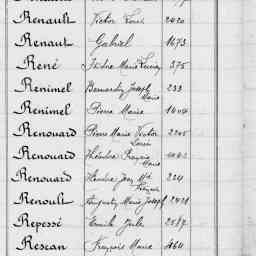 Renault Victor Louis 2420
Renaut Gabriel 1673
René Isidore Marie 375
Renimel Bernardin Joseph Marie 233
Renimel Pierre Marie 1404
Renouard Pierre Marie Victor Louis 2205
Renouard Théodore François Marie
Renouard Jean Mie François 224
Renoult Auguste Marie Joseph 2428
Repessé Emile Jules 2587
Resean François Marie 460